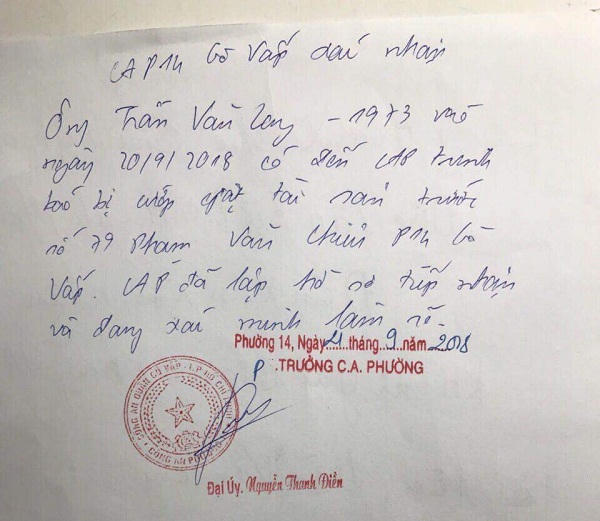 CAP14 Gò Vấp xác nhận
Ông Trần Văn Long - 1973 vào
ngày 20/9/2018 có đến CAP trình
báo bị cướp giật tài sản trước
số 79 Phạm Văn Chiêu P14 Gò
Vấp. CAP đã lập hồ sơ tiếp nhận
và đang xác minh làm rõ.
Phường 14, Ngày 21 tháng 9 năm 2018
P. TRƯỞNG C.A. PHƯỜNG
CÔNG AN QUẬN GÒ VẤP - T.P HỒ CHÍ MINH
CÔNG AN PHƯỜNG
Đại Úy. Nguyễn Thanh Điền